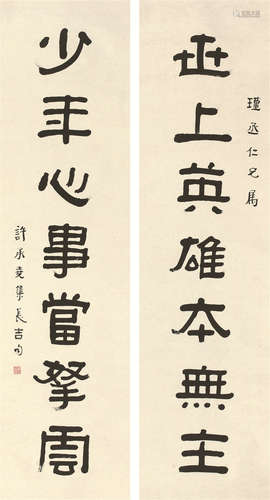 瑾丞仁兄属
世上英雄本無主
少年心事當拏雲
許承堯集長吉句